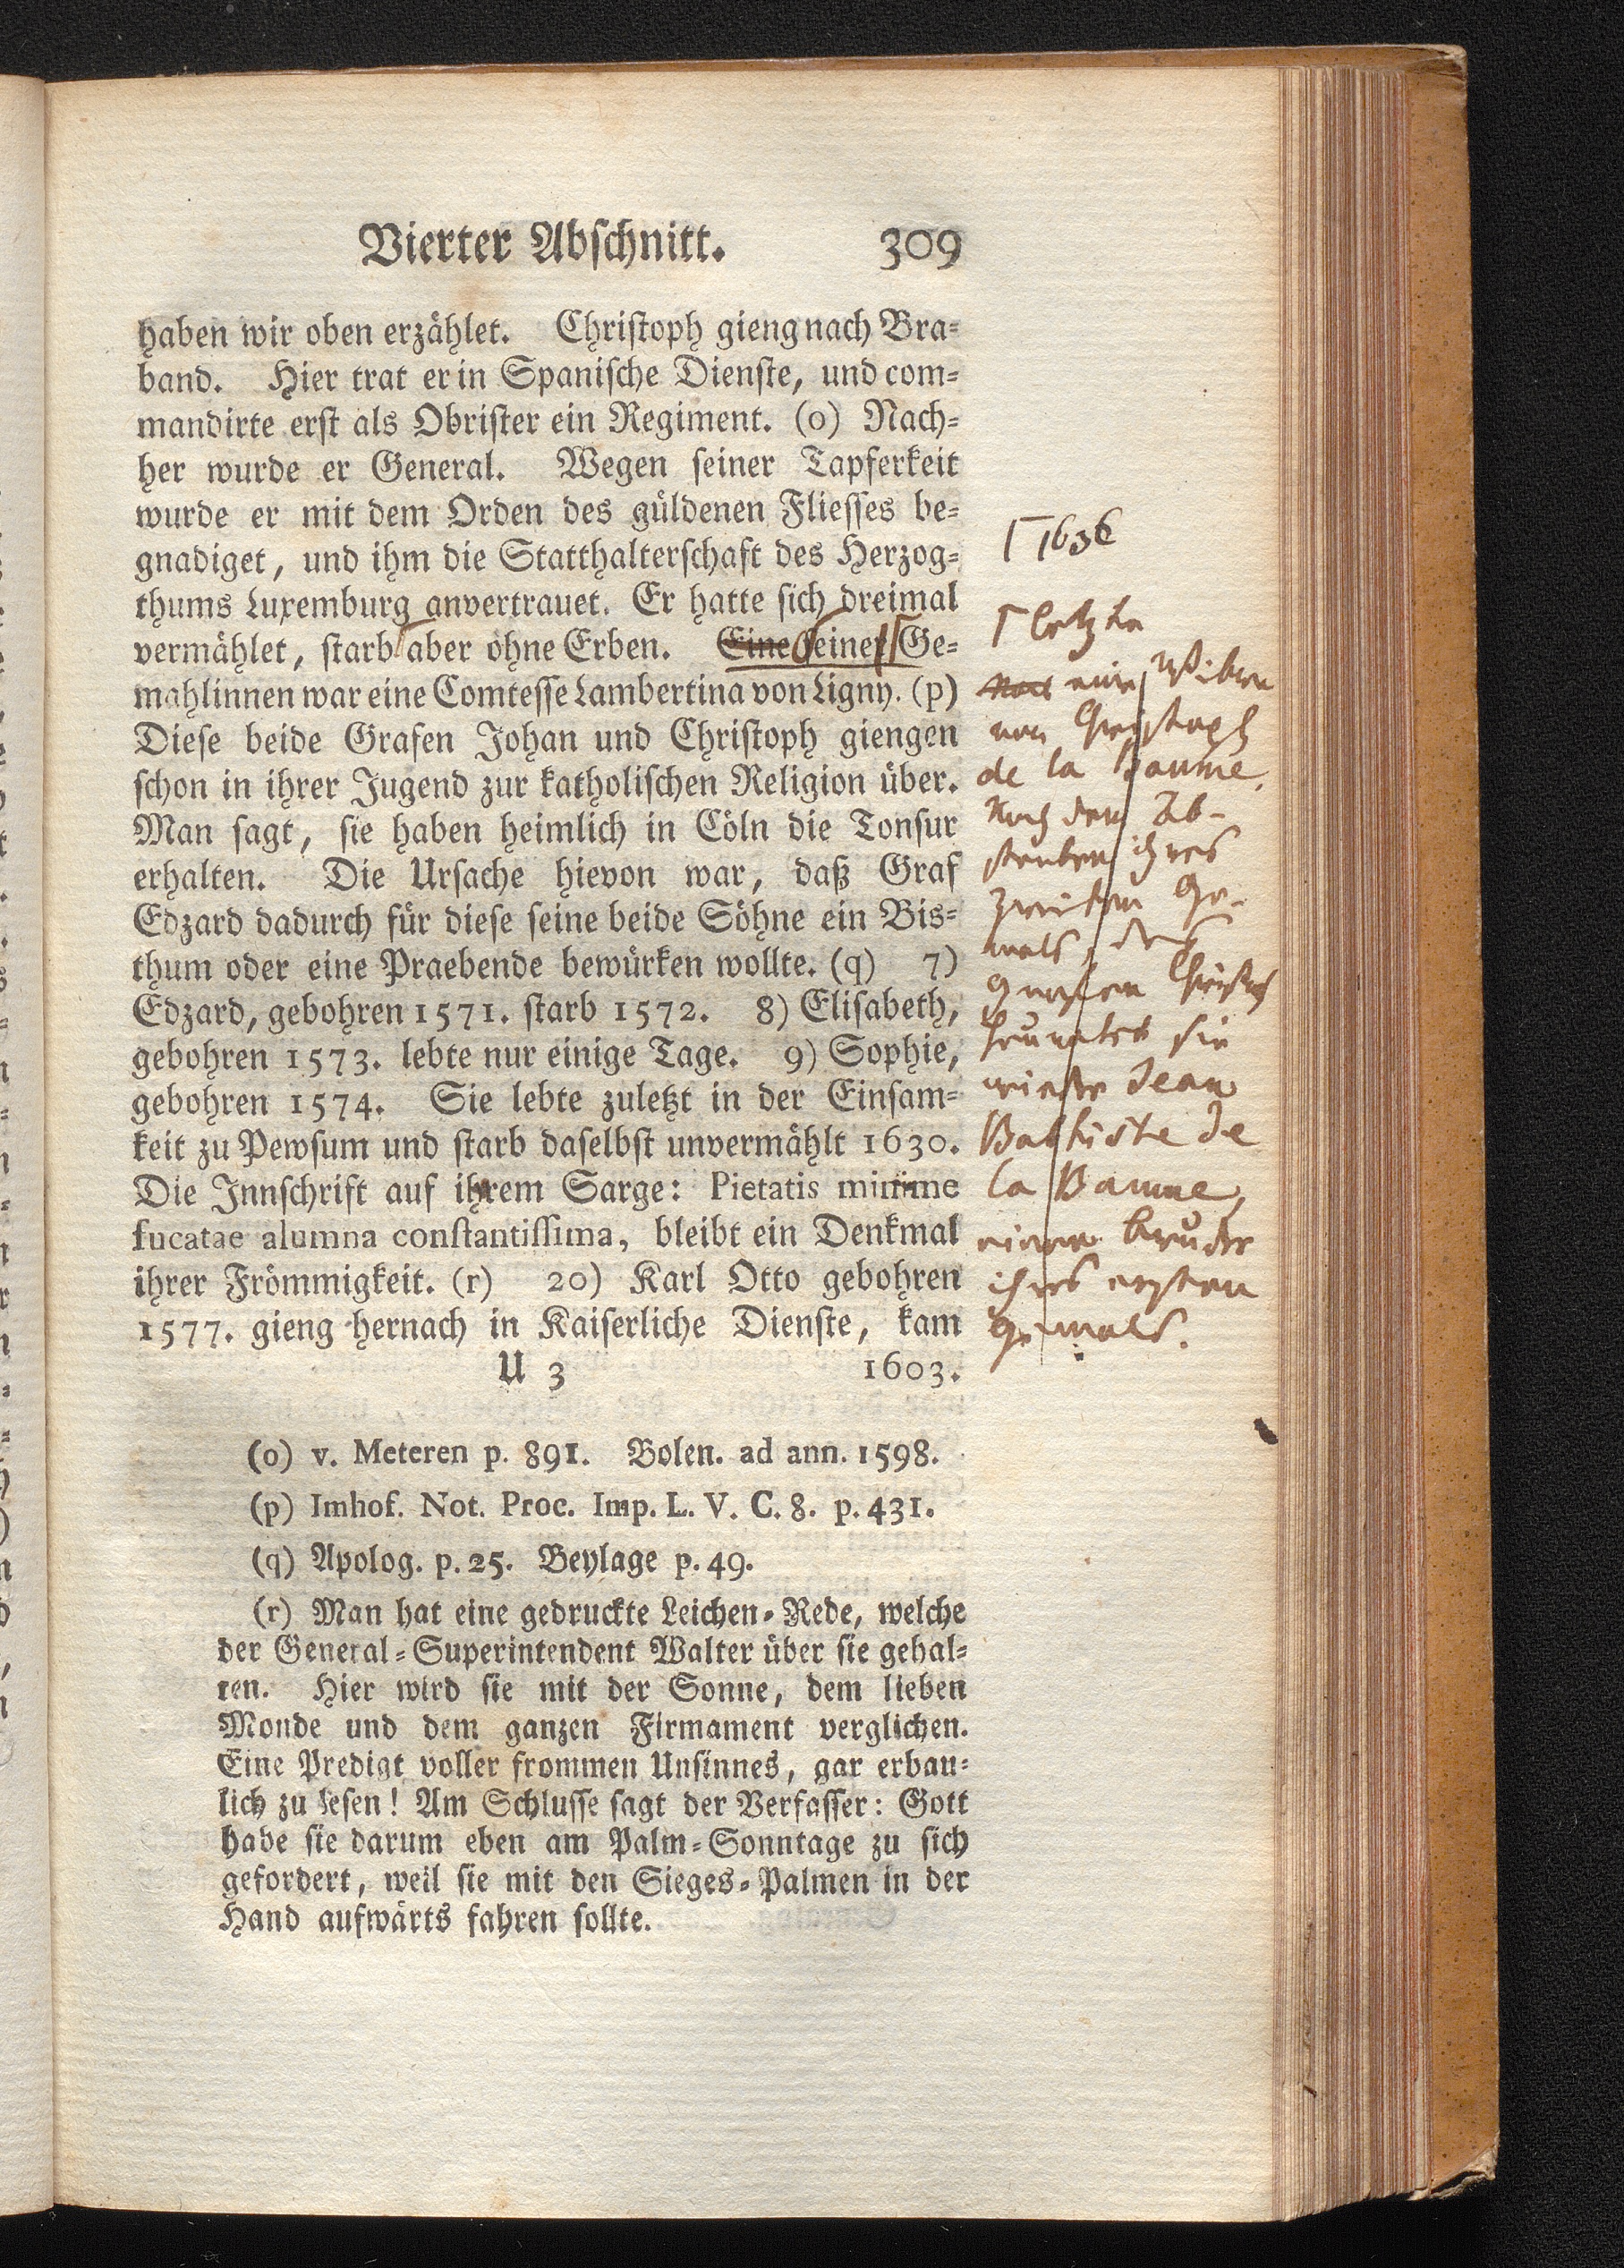 Vierter Abschnitt. 309
haben wir oben erzählet. Christoph gieng nach Bra-
band. Hier trat er in Spanische Dienste, und com-
mandirte erst als Obrister ein Regiment. (o) Nach-
her wurde er General. Wegen seiner Tapferkeit
wurde er mit dem Orden des güldenen Fliesses be-
gnadiget, und ihm die Statthalterschaft des Herzog-
thums Luxemburg anvertrauet. Er hatte sich dreimal
vermählet, starb aber ohne Erben. Eine seiner Ge-
mahlinnen war eine Comtesse Lambertina von Ligny. (p)
Diese beide Grafen Johan und Christoph giengen
schon in ihrer Jugend zur katholischen Religion über.
Man sagt, sie haben heimlich in Cöln die Tonsur
erhalten. Die Ursache hievon war, daß Graf
Edzard dadurch für diese seine beide Söhne ein Bis-
thum oder eine Praebende bewürken wollte. (q) 7)
Edzard, gebohren 1571. starb 1572. 8) Elisabeth,
gebohren 1573. lebte nur einige Tage. 9) Sophie,
gebohren 1574. Sie lebte zuletzt in der Einsam-
keit zu Pewsum und starb daselbst unvermählt 1630.
Die Innschrift auf ihrem Sarge: Pietatis minime
fucatae alumna constantissima, bleibt ein Denkmal
ihrer Frömmigkeit. (r) 20) Karl Otto gebohren
1577. gieng hernach in Kaiserliche Dienste, kam
U 3 1603.
(o) v. Meteren p. 891. Bolen. ad ann. 1598.
(p) Imhof. Not. Proc. Imp. L. V. C. 8. p. 431.
(q) Apolog. p. 25. Beylage p. 49.
(r) Man hat eine gedruckte Leichen-Rede, welche
der General-Superintendent Walter über sie gehal-
ten. Hier wird sie mit der Sonne, dem lieben
Monde und dem ganzen Firmament verglichen.
Eine Predigt voller frommen Unsinnes, gar erbau-
lich zu lesen! Am Schlusse sagt der Verfasser: Gott
habe sie darum eben am Palm-Sonntage zu sich
gefordert, weil sie mit den Sieges-Palmen in der
Hand aufwärts fahren sollte.
1636
letzte
eine Witwe
von Christoph
de la Baume.
Nach dem Ab-
sterben ihres
zweiten Ge-
mals, des
Grafen Christoph
heuratet sie
wieder Jean
Baptiste de
la Baume,
einen Bruder
ihres ersten
Gemals.